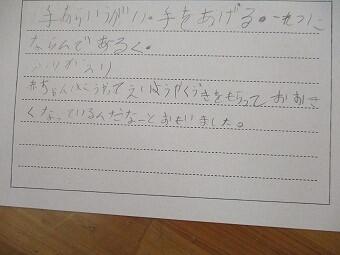 手あらいうがい。手をあげる。一れつに
ならんであるく。
ふりかえり
赤ちゃんはこうやってえいようやくうきをもらっておおき
くなっているんだなーとおもいました。